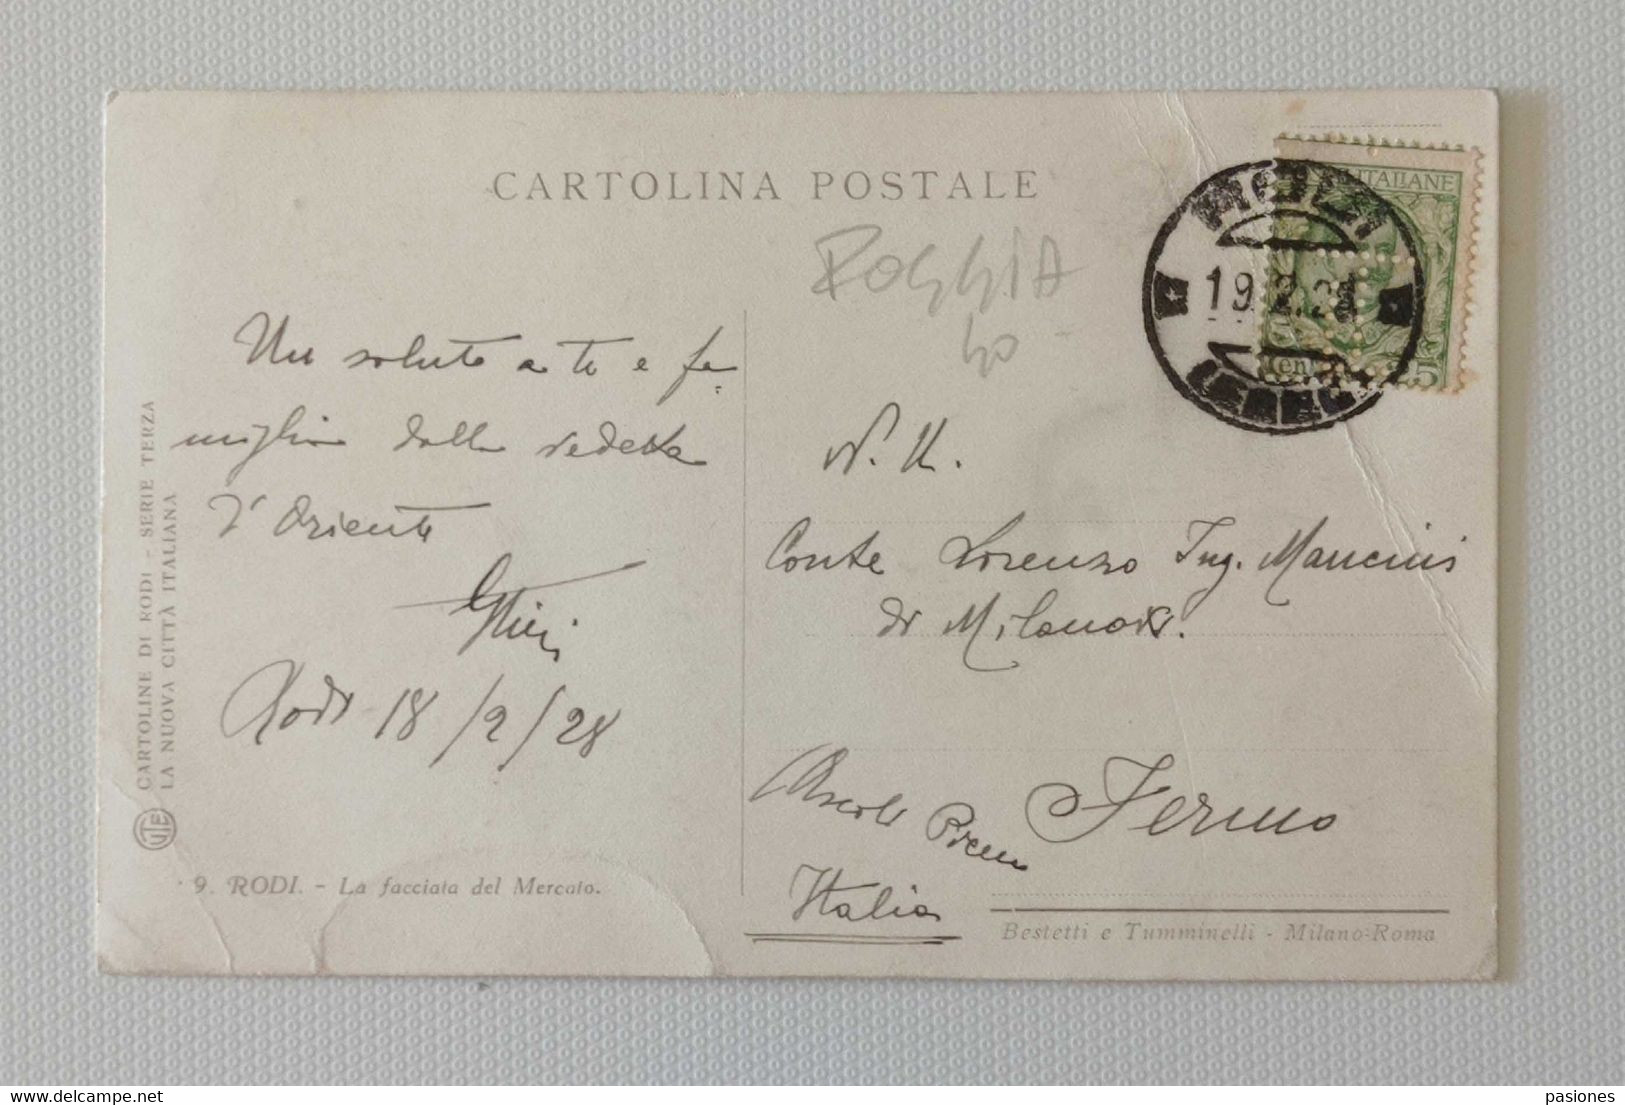 CARTOLINA POSTALE
ROGGIA
40-
ITALIANE
RODI
19.2.28
Cent
25
Un saluto a te e fa=
miglia dalla vedetta
d'Oriente
Rodi 18/2/28
N. H.
Conte Lorenzo Ing. Mancini
di Milano
Fermo
Ascoli Piceno
Italia
CARTOLINE DI RODI - SERIE TERZA
LA NUOVA CITTÀ ITALIANA
9. RODI. - La facciata del Mercato.
Bestetti e Tumminelli - Milano-Roma
delcampe.net
pasiones